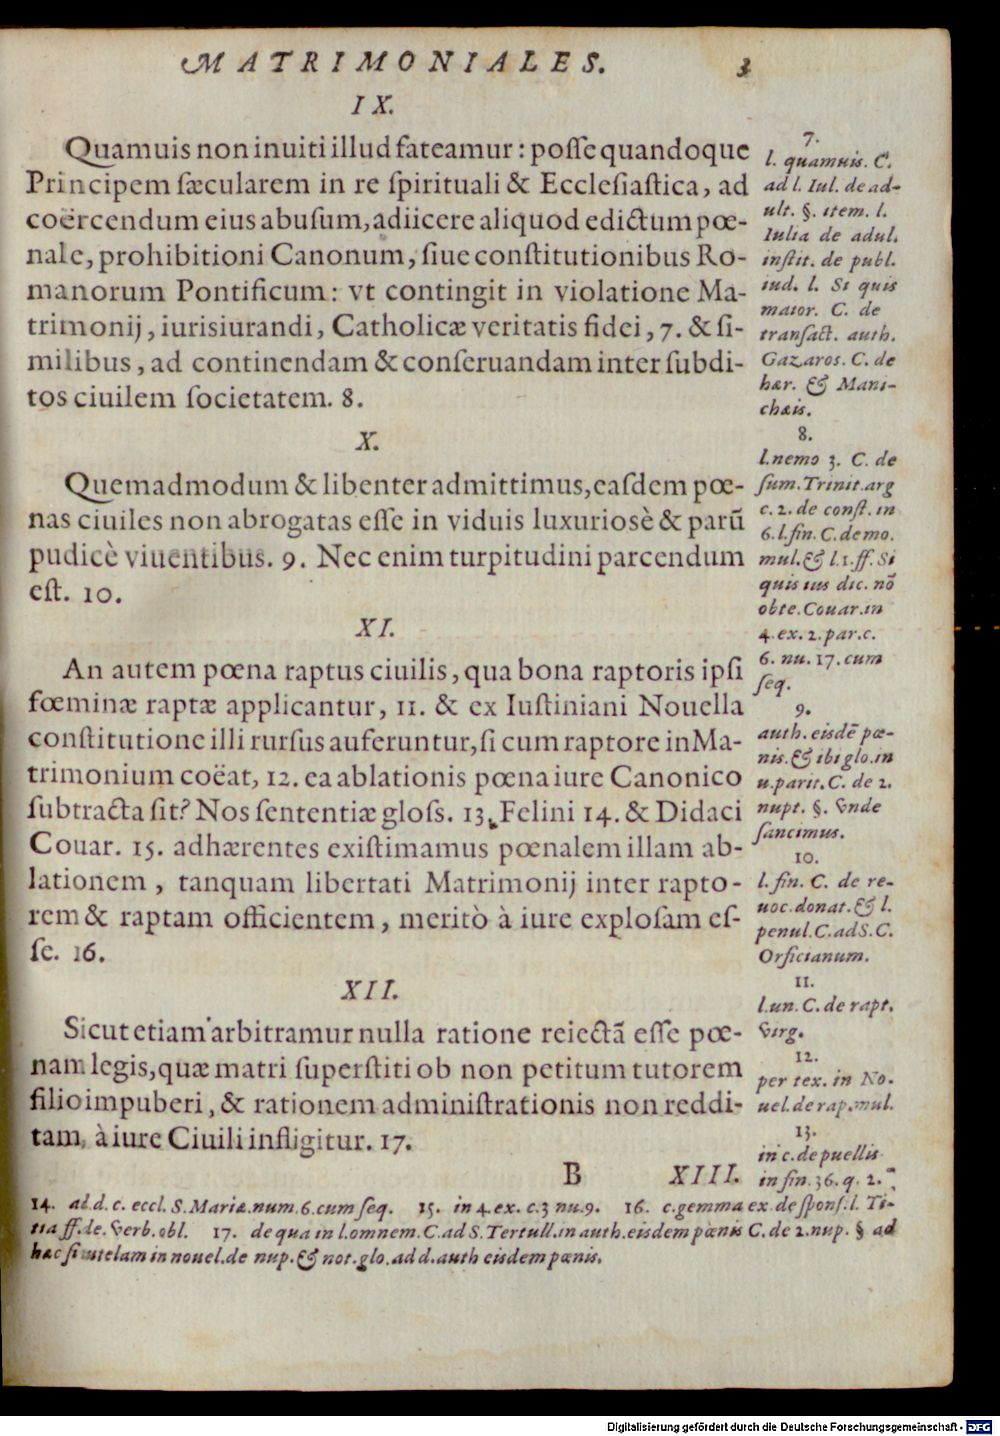 MATRIMONIALES. 3
IX.
Quamuis non inuiti illud fateamur: posse quandoque
Principem sæcularem in re spirituali & Ecclesiastica, ad
coërcendum eius abusum, adiicere aliquod edictum pœ-
nale, prohibitioni Canonum, siue constitutionibus Ro-
manorum Pontificum: vt contingit in violatione Ma-
trimonij, iurisiurandi, Catholicæ veritatis fidei, 7. & si-
milibus, ad continendam & conseruandam inter subdi-
tos ciuilem societatem. 8.
X.
Quemadmodum & libenter admittimus, easdem pœ-
nas ciuiles non abrogatas esse in viduis luxuriosè & parũ
pudicè viuentibus. 9. Nec enim turpitudini parcendum
est. 10.
XI.
An autem pœna raptus ciuilis, qua bona raptoris ipsi
fœminæ raptæ applicantur, 11. & ex Iustiniani Nouella
constitutione illi rursus auferuntur, si cum raptore in Ma-
trimonium coëat, 12. ea ablationis pœna iure Canonico
subtracta sit? Nos sententiæ gloss. 13. Felini 14. & Didaci
Couar. 15. adhærentes existimamus pœnalem illam ab-
lationem, tanquam libertati Matrimonij inter rapto-
rem & raptam officientem, meritò à iure explosam es-
se. 16.
XII.
Sicut etiam arbitramur nulla ratione reiectã esse pœ-
nam legis, quæ matri superstiti ob non petitum tutorem
filio impuberi, & rationem administrationis non reddi-
tam, à iure Ciuili infligitur. 17.
B XIII.
7.
l. quamuis. C.
ad l. Iul. de ad-
ult. §. item. l.
Iulia de adul.
instit. de publ.
iud. l. Si quis
maior. C. de
transact. auth.
Gazaros. C. de
hær. & Mani-
chæis.
8.
l. nemo 3. C. de
sum. Trinit. arg
c. 2. de const. in
6. l. fin. C. de mo.
mul. & l. 1. ff. Si
quis ius dic. nõ
obte. Couar. in
4. ex. 2. par. c.
6. nu. 17. cum
seq.
9.
auth. eisdẽ pœ-
nis. & ibi glo. in
u. parit. C. de 2.
nupt. §. Vnde
sancimus.
10.
l. fin. C. de re-
uoc. donat. & l.
penul. C. ad S. C.
Orficianum.
11.
l. un. C. de rapt.
Virg.
12.
per tex. in No-
uel. de rap. mul.
13.
in c. de puellis
in fin. 36. q. 2.
14. ad d. c. eccl. S. Mariæ. num. 6. cum seq. 15. in 4. ex. c. 3 nu. 9. 16. c. gemma ex. de spons. l. Ti-
tia ff. de. Verb. obl. 17. de qua in l. omnem. C. ad S. Tertull. in auth. eisdem pœnis C. de 2. nup. § ad
hæc si tutelam in nouel. de nup. & not. glo. ad d. auth eisdem pœnis.
Digitalisierung gefördert durch die Deutsche Forschungsgemeinschaft - DFG